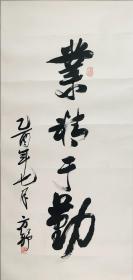 業精于勤
乙酉年七月方野